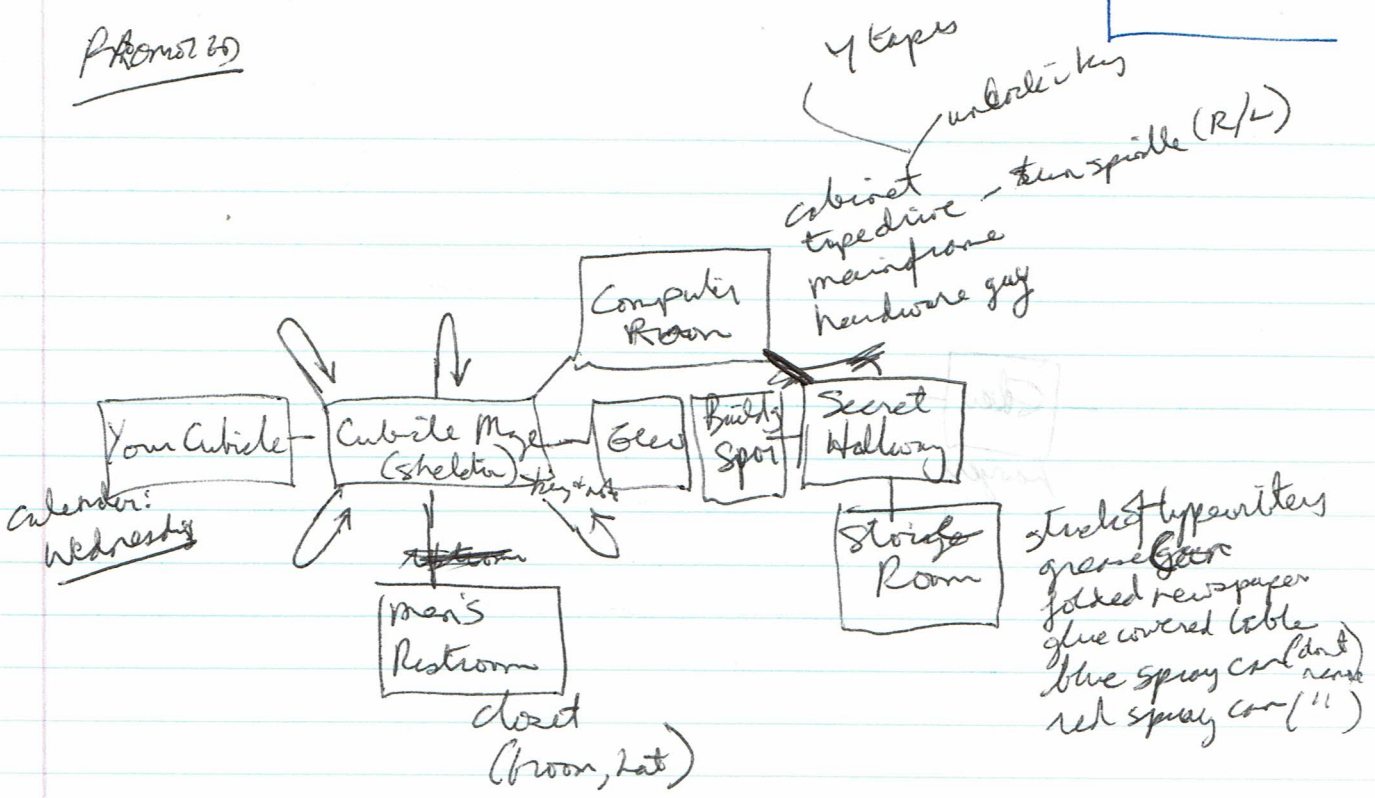 Promoted
4 tapes
unlock: key
cabinet
tape drive - turn spindle (R/L)
mainframe
hardware guy
Computer
Room
Your Cubicle
Cubicle Maze
(Sheldon)
key + note
Elev
Buildg
Spot
Secret
Hallway
calender:
Wednesday
Storage
Room
men's
Restroom
closet
(broom, hat)
stack of typewriters
grease
folded newspaper
glue covered table
blue spray can (don't
red spray can (")